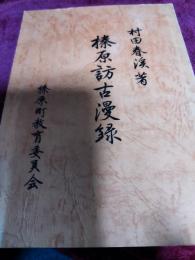 村田春渓著
榛原訪古漫録
榛原町教育委員会